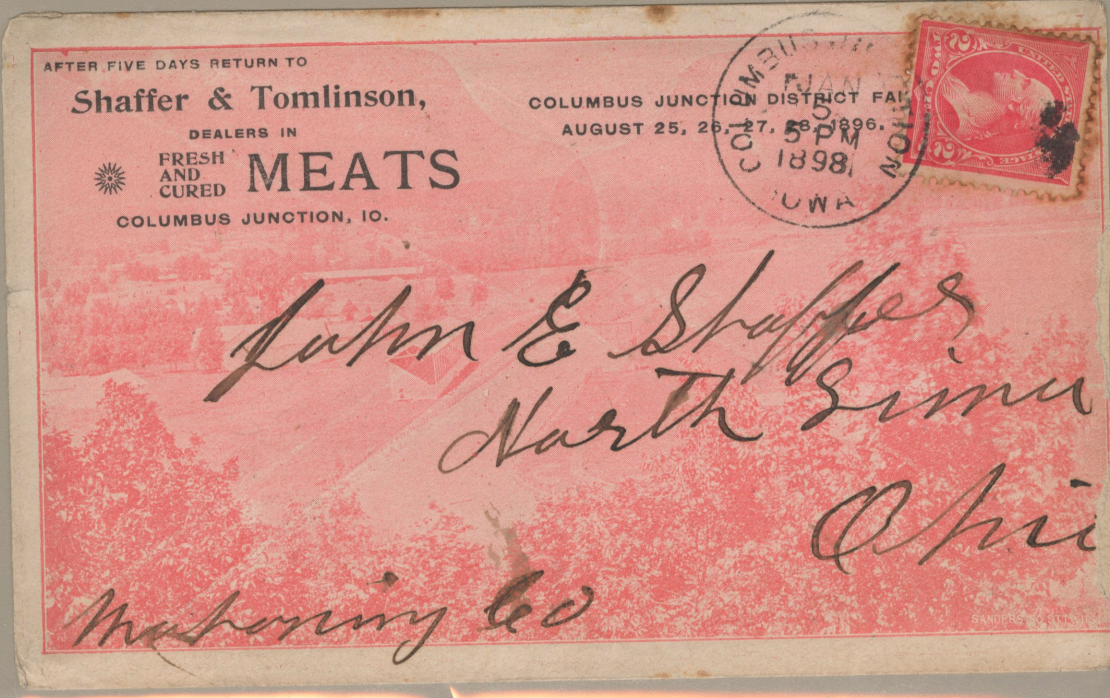 AFTER FIVE DAYS RETURN TO
Shaffer & Tomlinson,
DEALERS IN
FRESH
AND
CURED
MEATS
COLUMBUS JUNCTION, IO.
COLUMBUS JUNCTION DISTRICT FAI
AUGUST 25, 26, 27, 28, 1896.
COLUMBUS
JAN
5
5 PM
1898
IOWA
John E Shaffer
North Lima
Ohio
Mahoning Co